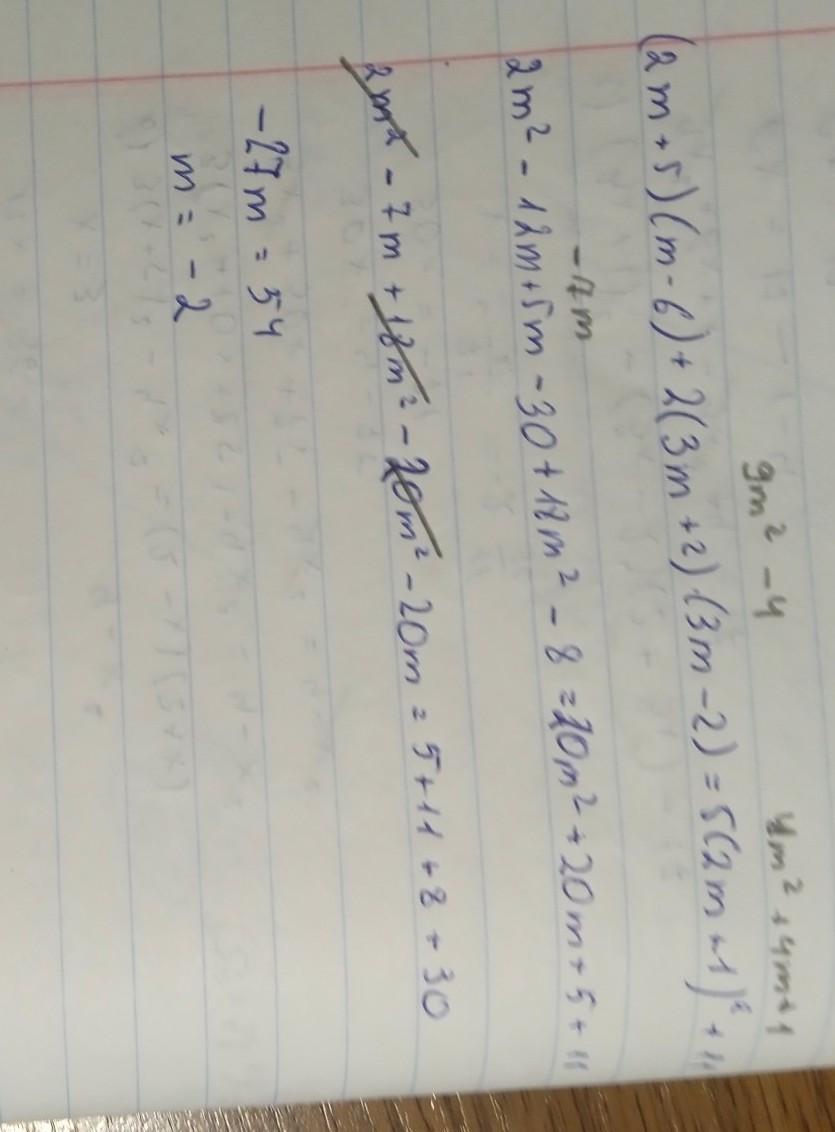 9m² - 4 4m² + 4m + 1
(2m + 5)(m - 6) + 2(3m + 2)·(3m - 2) = 5(2m + 1)² + 11
-17m
2m² - 12m + 5m - 30 + 18m² - 8 = 20m² + 20m + 5 + 11
2m² - 7m + 18m² - 20m² - 20m = 5 + 11 + 8 + 30
-27m = 54
m = -2